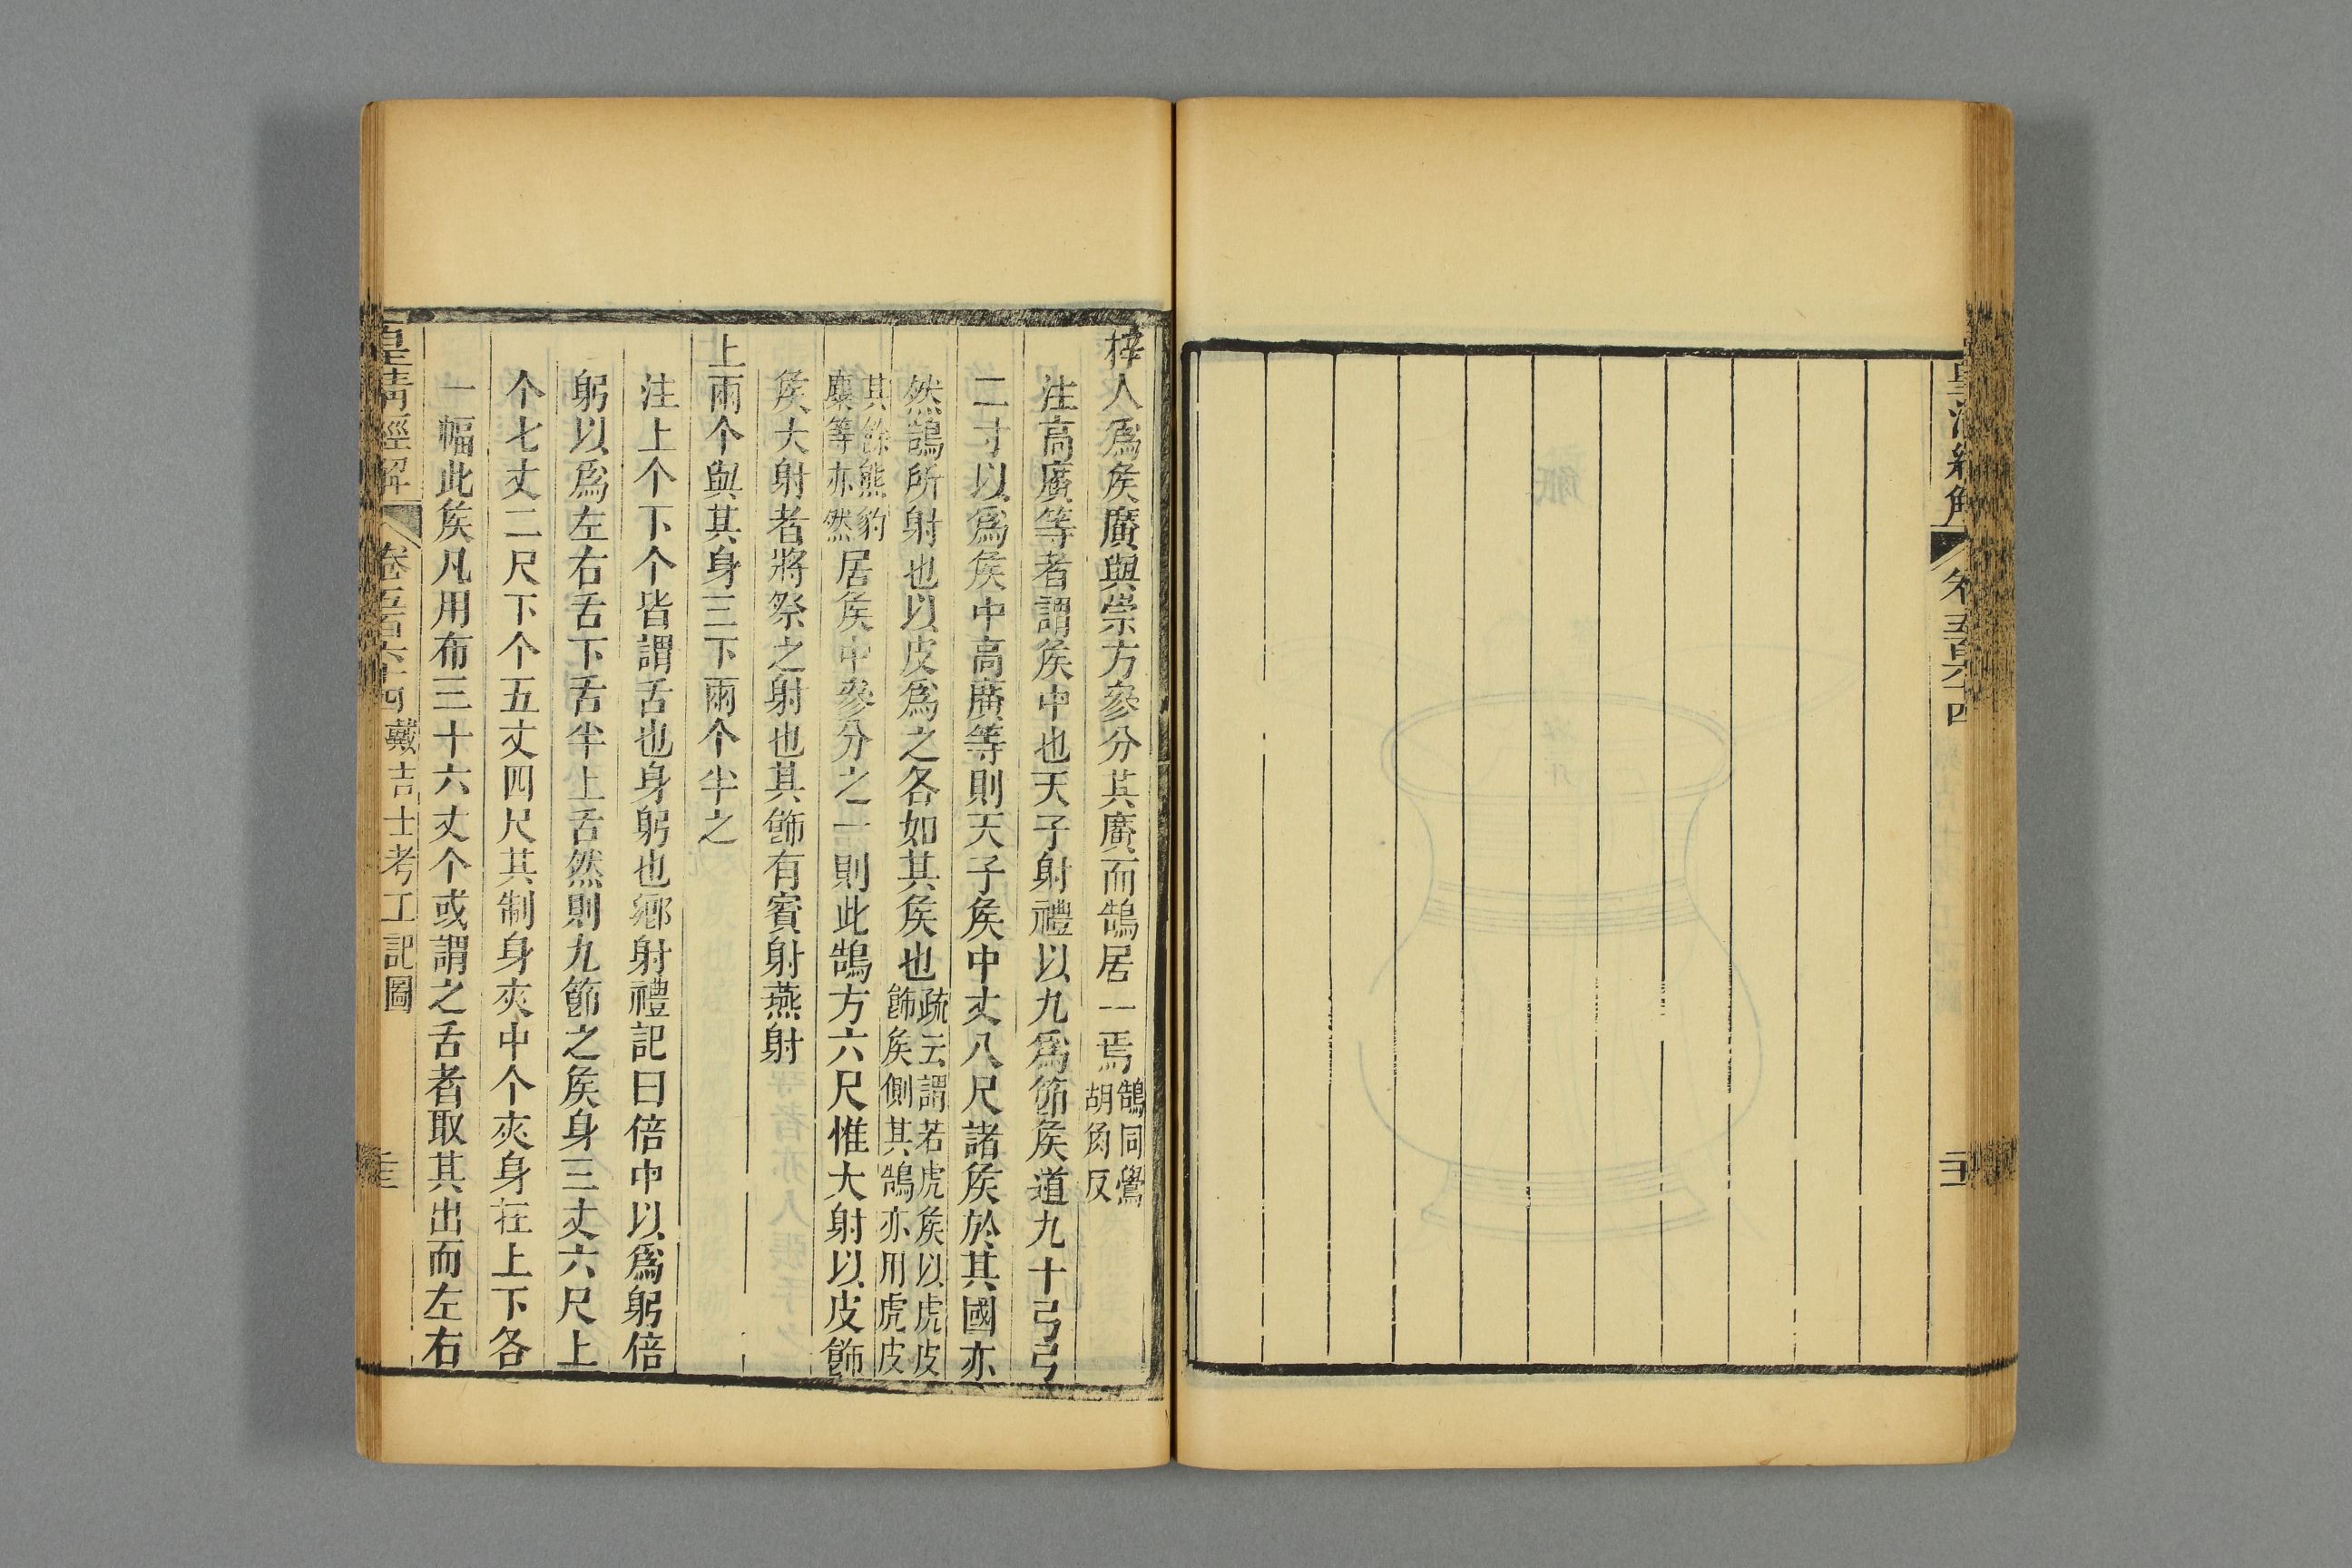 皇清經解 卷五百六十四
梓人爲矦廣與崇方參分其廣而鵠居一焉鵠同鷽胡角反
注高廣等者謂矦中也天子射禮以九爲節矦道九十弓弓
二寸以爲矦中高廣等則天子矦中丈八尺諸矦於其國亦
然鵠所射也以皮爲之各如其矦也疏云謂若虎矦以虎皮飾矦側其鵠亦用虎皮
其餘熊豹麋等亦然居矦中參分之一則此鵠方六尺惟大射以皮飾
矦大射者將祭之射也其飾有賓射燕射
上兩个與其身三下兩个半之
注上个下个皆謂舌也身躬也鄉射禮記曰倍中以爲躬倍
躬以爲左右舌下舌半上舌然則九節之矦身三丈六尺上
个七丈二尺下个五丈四尺其制身夾中个夾身在上下各
一幅此矦凡用布三十六丈个或謂之舌者取其出而左右
皇清經解 卷五百六十四 戴吉士考工記圖